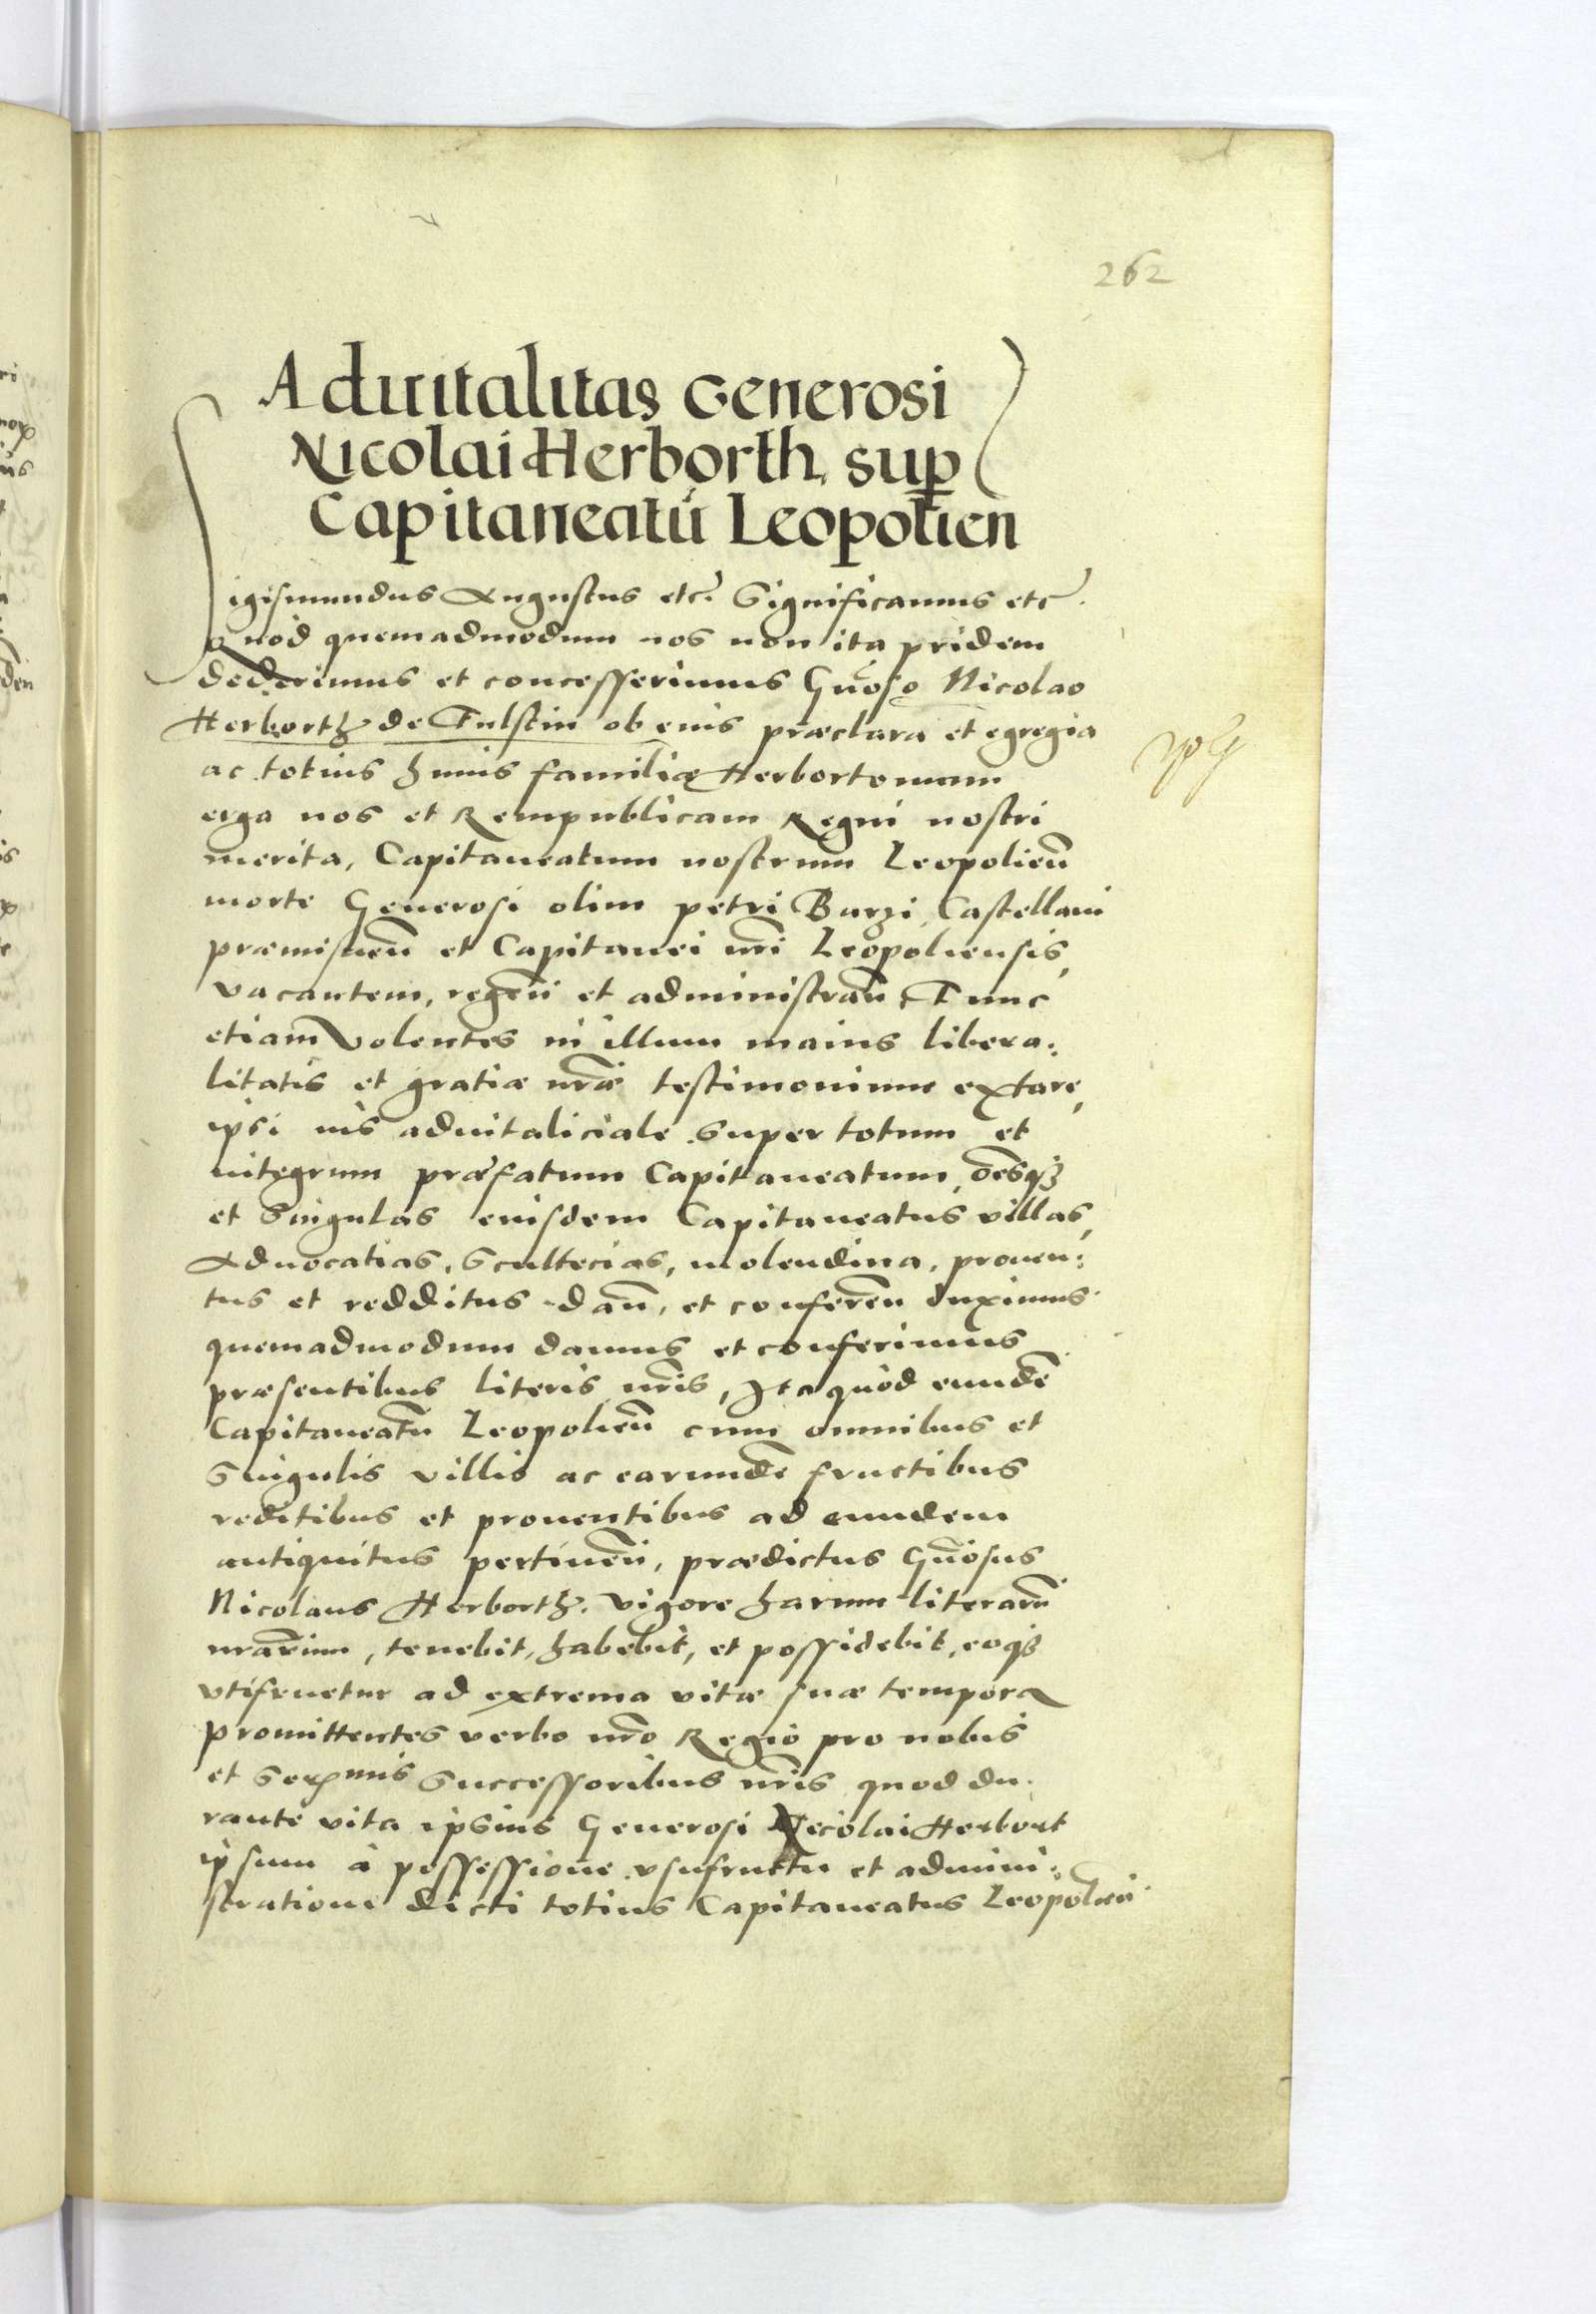 262
Aduitalitas Generosi
Nicolai Herborth sup
Capitaneatū Leopolien
Sigismundus Augustus etc. Significamus etc.
Quod quemadmodum nos non ita pridem
dederimus et concesserimus Gnōso Nicolao
Herborth de Fulstin ob eius præclara et egregia
ac totius huius familiæ Herbortowiani
erga nos et Rempublicam Regni nostri
merita, Capitaneatum nostrum Leopolieñ
morte Generosi olim petri Barzi Castellani
præmislieñ et Capitanei nr̄i Leopoliensis,
vacantem, regeñ et administrañ, Tunc
etiam volentes in illum maius libera:
litatis et gratiæ nr̄æ testimonium extare,
ipsi ius aduitaliciale super totum et
integrum præfatum Capitaneatum, oēsq3
et singulas eiusdem Capitaneatus villas,
Aduocatias, Scultecias, molendina, prouen:
tus et redditus dañ, et confereñ duximus
quemadmodum damus et conferimus
præsentibus literis nr̄is, Ita quod eundē
Capitaneatū Leopolieñ cum omnibus et
singulis villis ac earundē fructibus
reditibus et prouentibus ad eundem
antiquitus pertineñ, prædictus Gnōsus
Nicolaus Herborth. vigore harum literarū
nr̄arum, tenebit, habebit, et possidebit, eoq3
vtifruetur ad extrema vitæ suæ tempora
promittentes verbo nr̄o Regio pro nobis
et Ser mis Successoribus nr̄is quod du:
rante vita ipsius Generosi Nicolai Herbort
ipsum à possessione vsufructu et admini:
stratione dicti totius Capitaneatus Leopolieñ